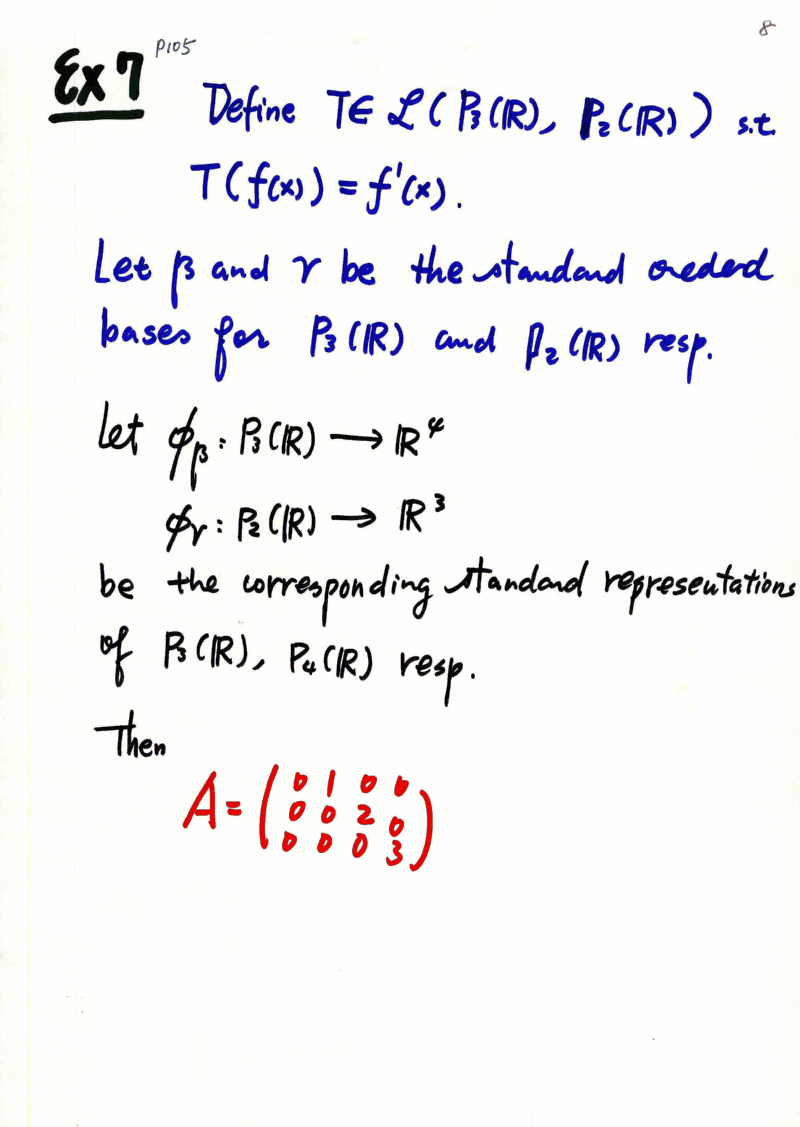 8
Ex 7 P105
Define T∈ ℒ(P₃(ℝ), P₂(ℝ)) s.t.
T(f(x)) = f'(x).
Let β and γ be the standard oreded
bases for P₃(ℝ) and P₂(ℝ) resp.
Let ϕ_β : P₃(ℝ) ⟶ ℝ⁴
ϕ_γ : P₂(ℝ) ⟶ ℝ³
be the corresponding standard representations
of P₃(ℝ), P₄(ℝ) resp.
Then
A = ( 0 1 0 0
0 0 2 0
0 0 0 3 )